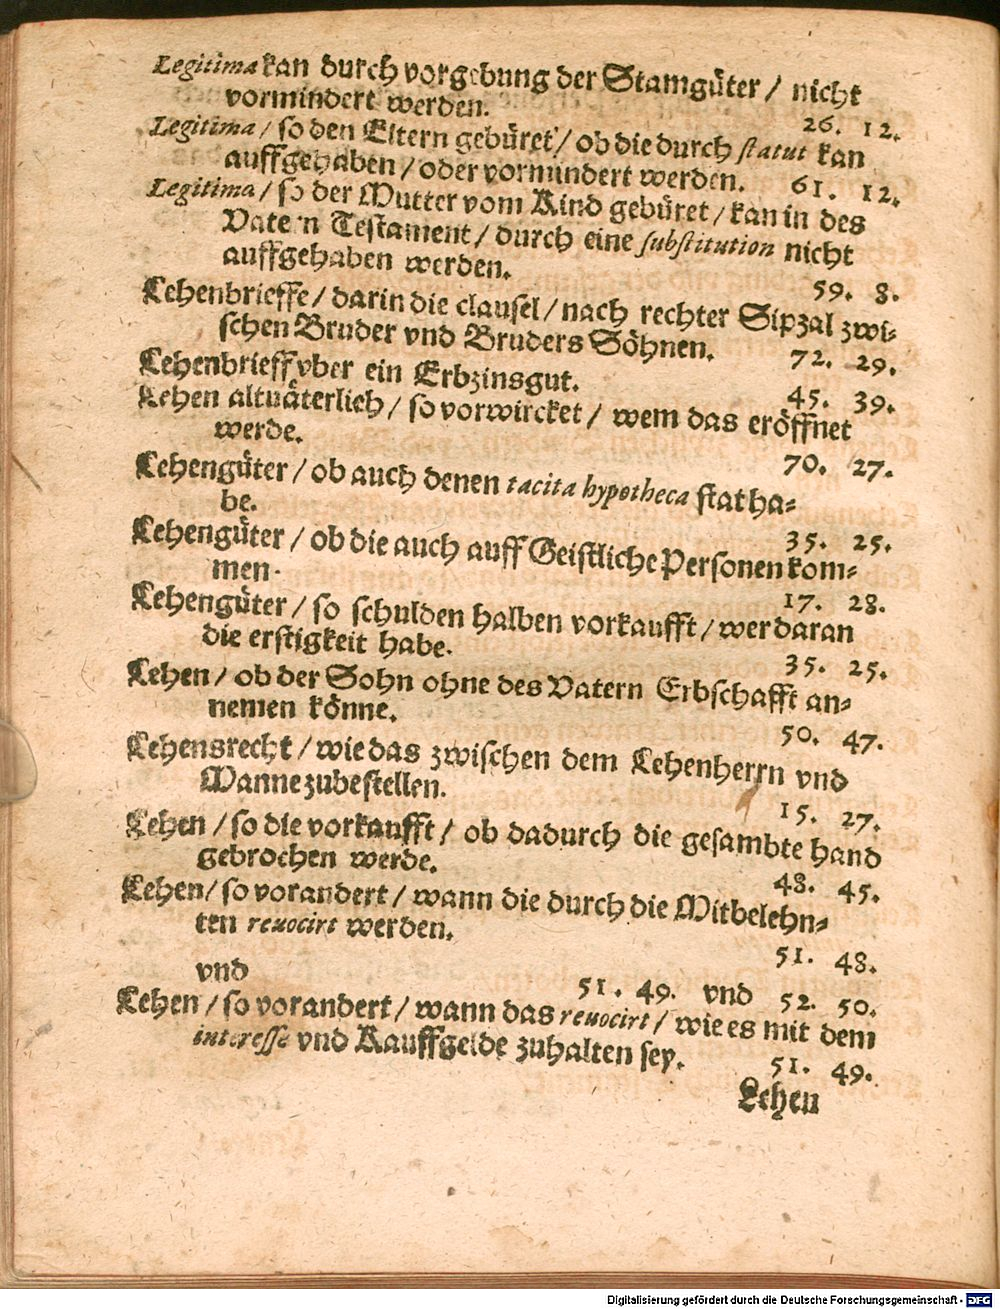 Legitima kan durch vorgebung der Stamgüter / nicht
vormindert werden. 26. 12.
Legitima / so den Eltern gebüret / ob die durch statut kan
auffgehaben / oder vormindert werden. 61. 12.
Legitima / so der Mutter vom Kind gebüret / kan in des
Vatern Testament / durch eine substitution nicht
auffgehaben werden. 59. 8.
Lehenbrieffe / darin die clausel / nach rechter Sipzal zwi-
schen Bruder vnd Bruders Söhnen. 72. 29.
Lehenbrieff vber ein Erbzinsgut. 45. 39.
Lehen altväterlich / so vorwircket / wem das eröffnet
werde. 70. 27.
Lehengüter / ob auch denen tacita hypotheca stat ha-
be. 35. 25.
Lehengüter / ob die auch auff Geistliche Personen kom-
men. 17. 28.
Lehengüter / so schulden halben vorkaufft / wer daran
die erstigkeit habe. 35. 25.
Lehen / ob der Sohn ohne des Vatern Erbschafft an-
nemen könne. 50. 47.
Lehensrecht / wie das zwischen dem Lehenherrn vnd
Manne zubestellen. 15. 27.
Lehen / so die vorkaufft / ob dadurch die gesambte hand
gebrochen werde. 48. 45.
Lehen / so vorandert / wann die durch die Mitbelehn-
ten reuocirt werden. 51. 48.
vnd 51. 49. vnd 52. 50.
Lehen / so vorandert / wann das reuocirt / wie es mit dem
interesse vnd Kauffgelde zuhalten sey. 51. 49.
Lehen
Digitalisierung gefördert durch die Deutsche Forschungsgemeinschaft - DFG